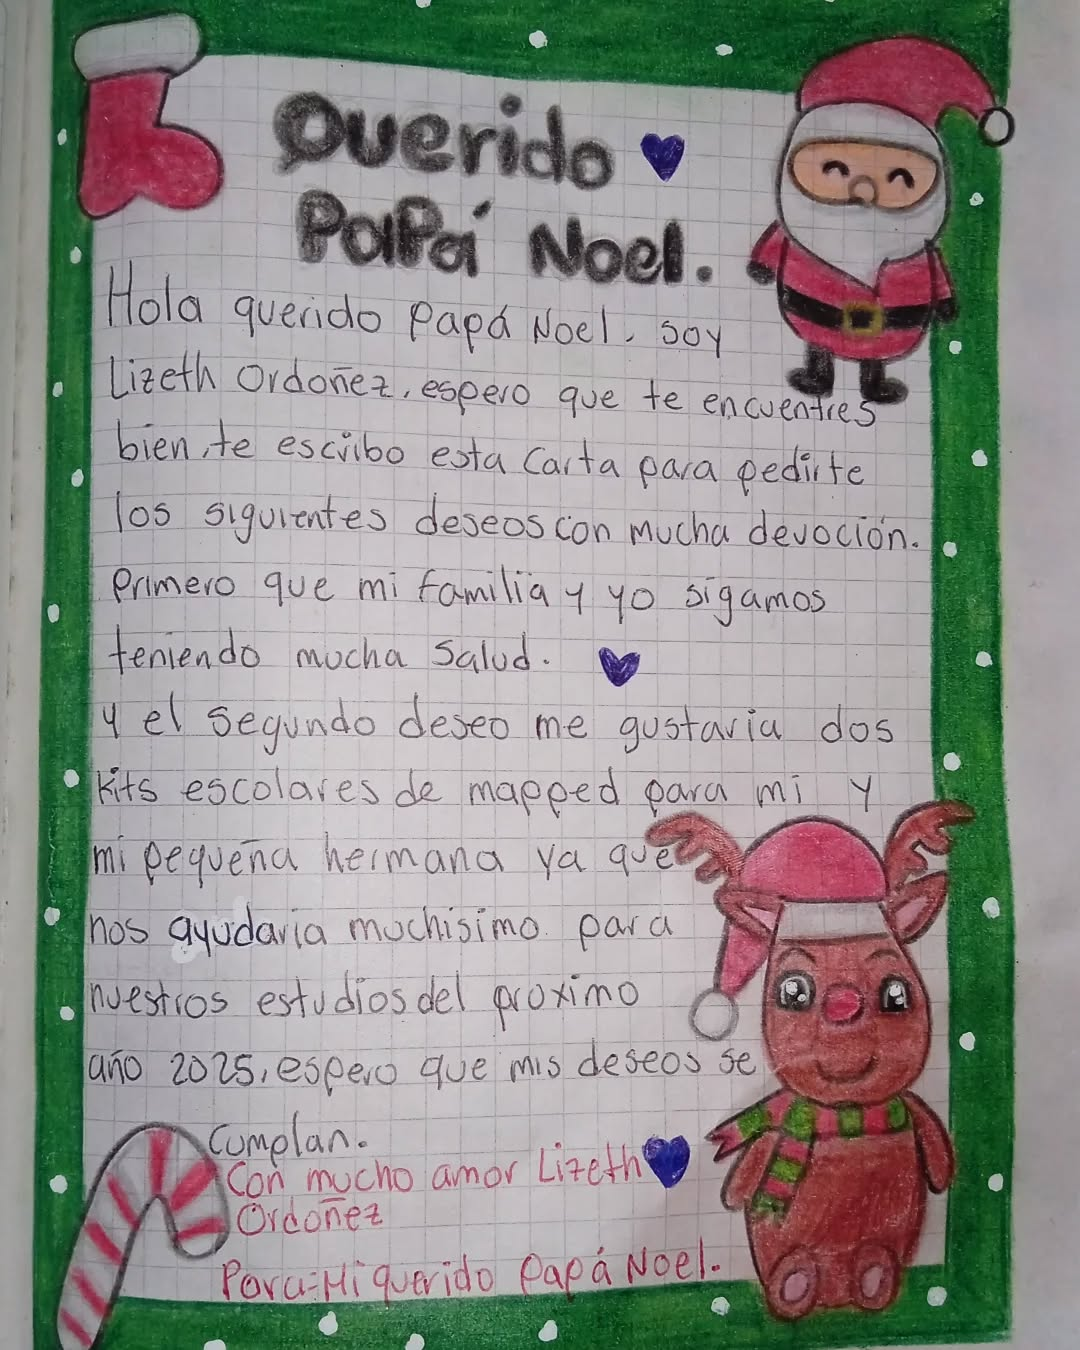 Querido
Papá Noel.
Hola querido Papá Noel, soy
Lizeth Ordoñez, espero que te encuentres
bien, te escribo esta Carta para pedirte
los siguientes deseos con mucha devoción.
Primero que mi familia y yo sigamos
teniendo mucha Salud.
y el segundo deseo me gustaria dos
kits escolares de mapped para mi y
mi pequeña hermana ya que
nos ayudaria muchisimo para
nuestros estudios del proximo
año 2025, espero que mis deseos se
Cumplan.
Con mucho amor Lizeth
Ordoñez
Para: Mi querido Papá Noel.